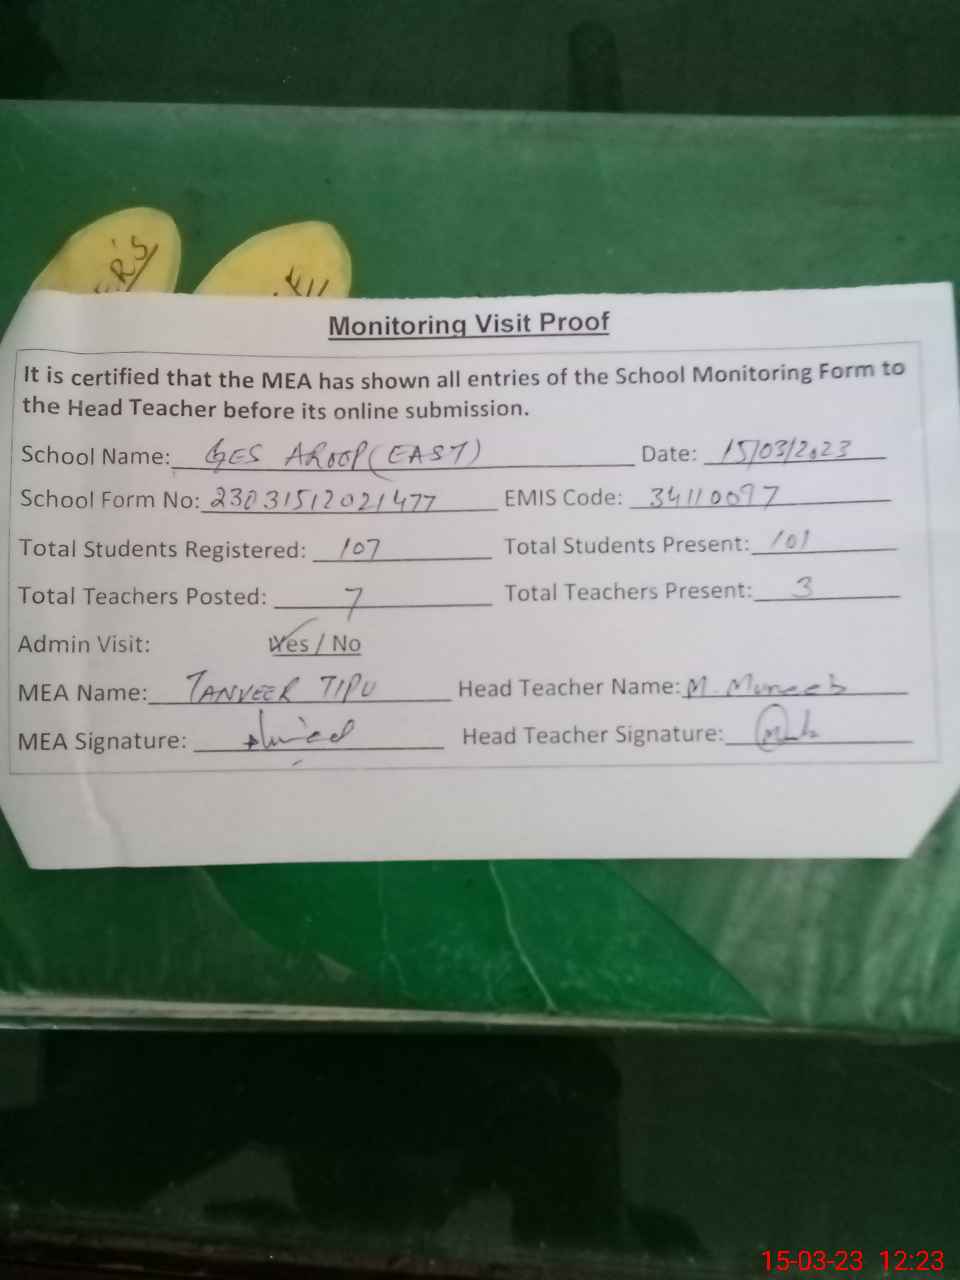 ER'S
Monitoring Visit Proof
It is certified that the MEA has shown all entries of the School Monitoring Form to
the Head Teacher before its online submission.
School Name: GES AROOP (EAST) Date: 15/03/2023
School Form No: 23031512021477 EMIS Code: 34110097
Total Students Registered: 107 Total Students Present: 101
Total Teachers Posted: 7 Total Teachers Present: 3
Admin Visit: Yes / No
MEA Name: TANVEER TIPU Head Teacher Name: M. Muneeb
MEA Signature: Head Teacher Signature:
15-03-23 12:23